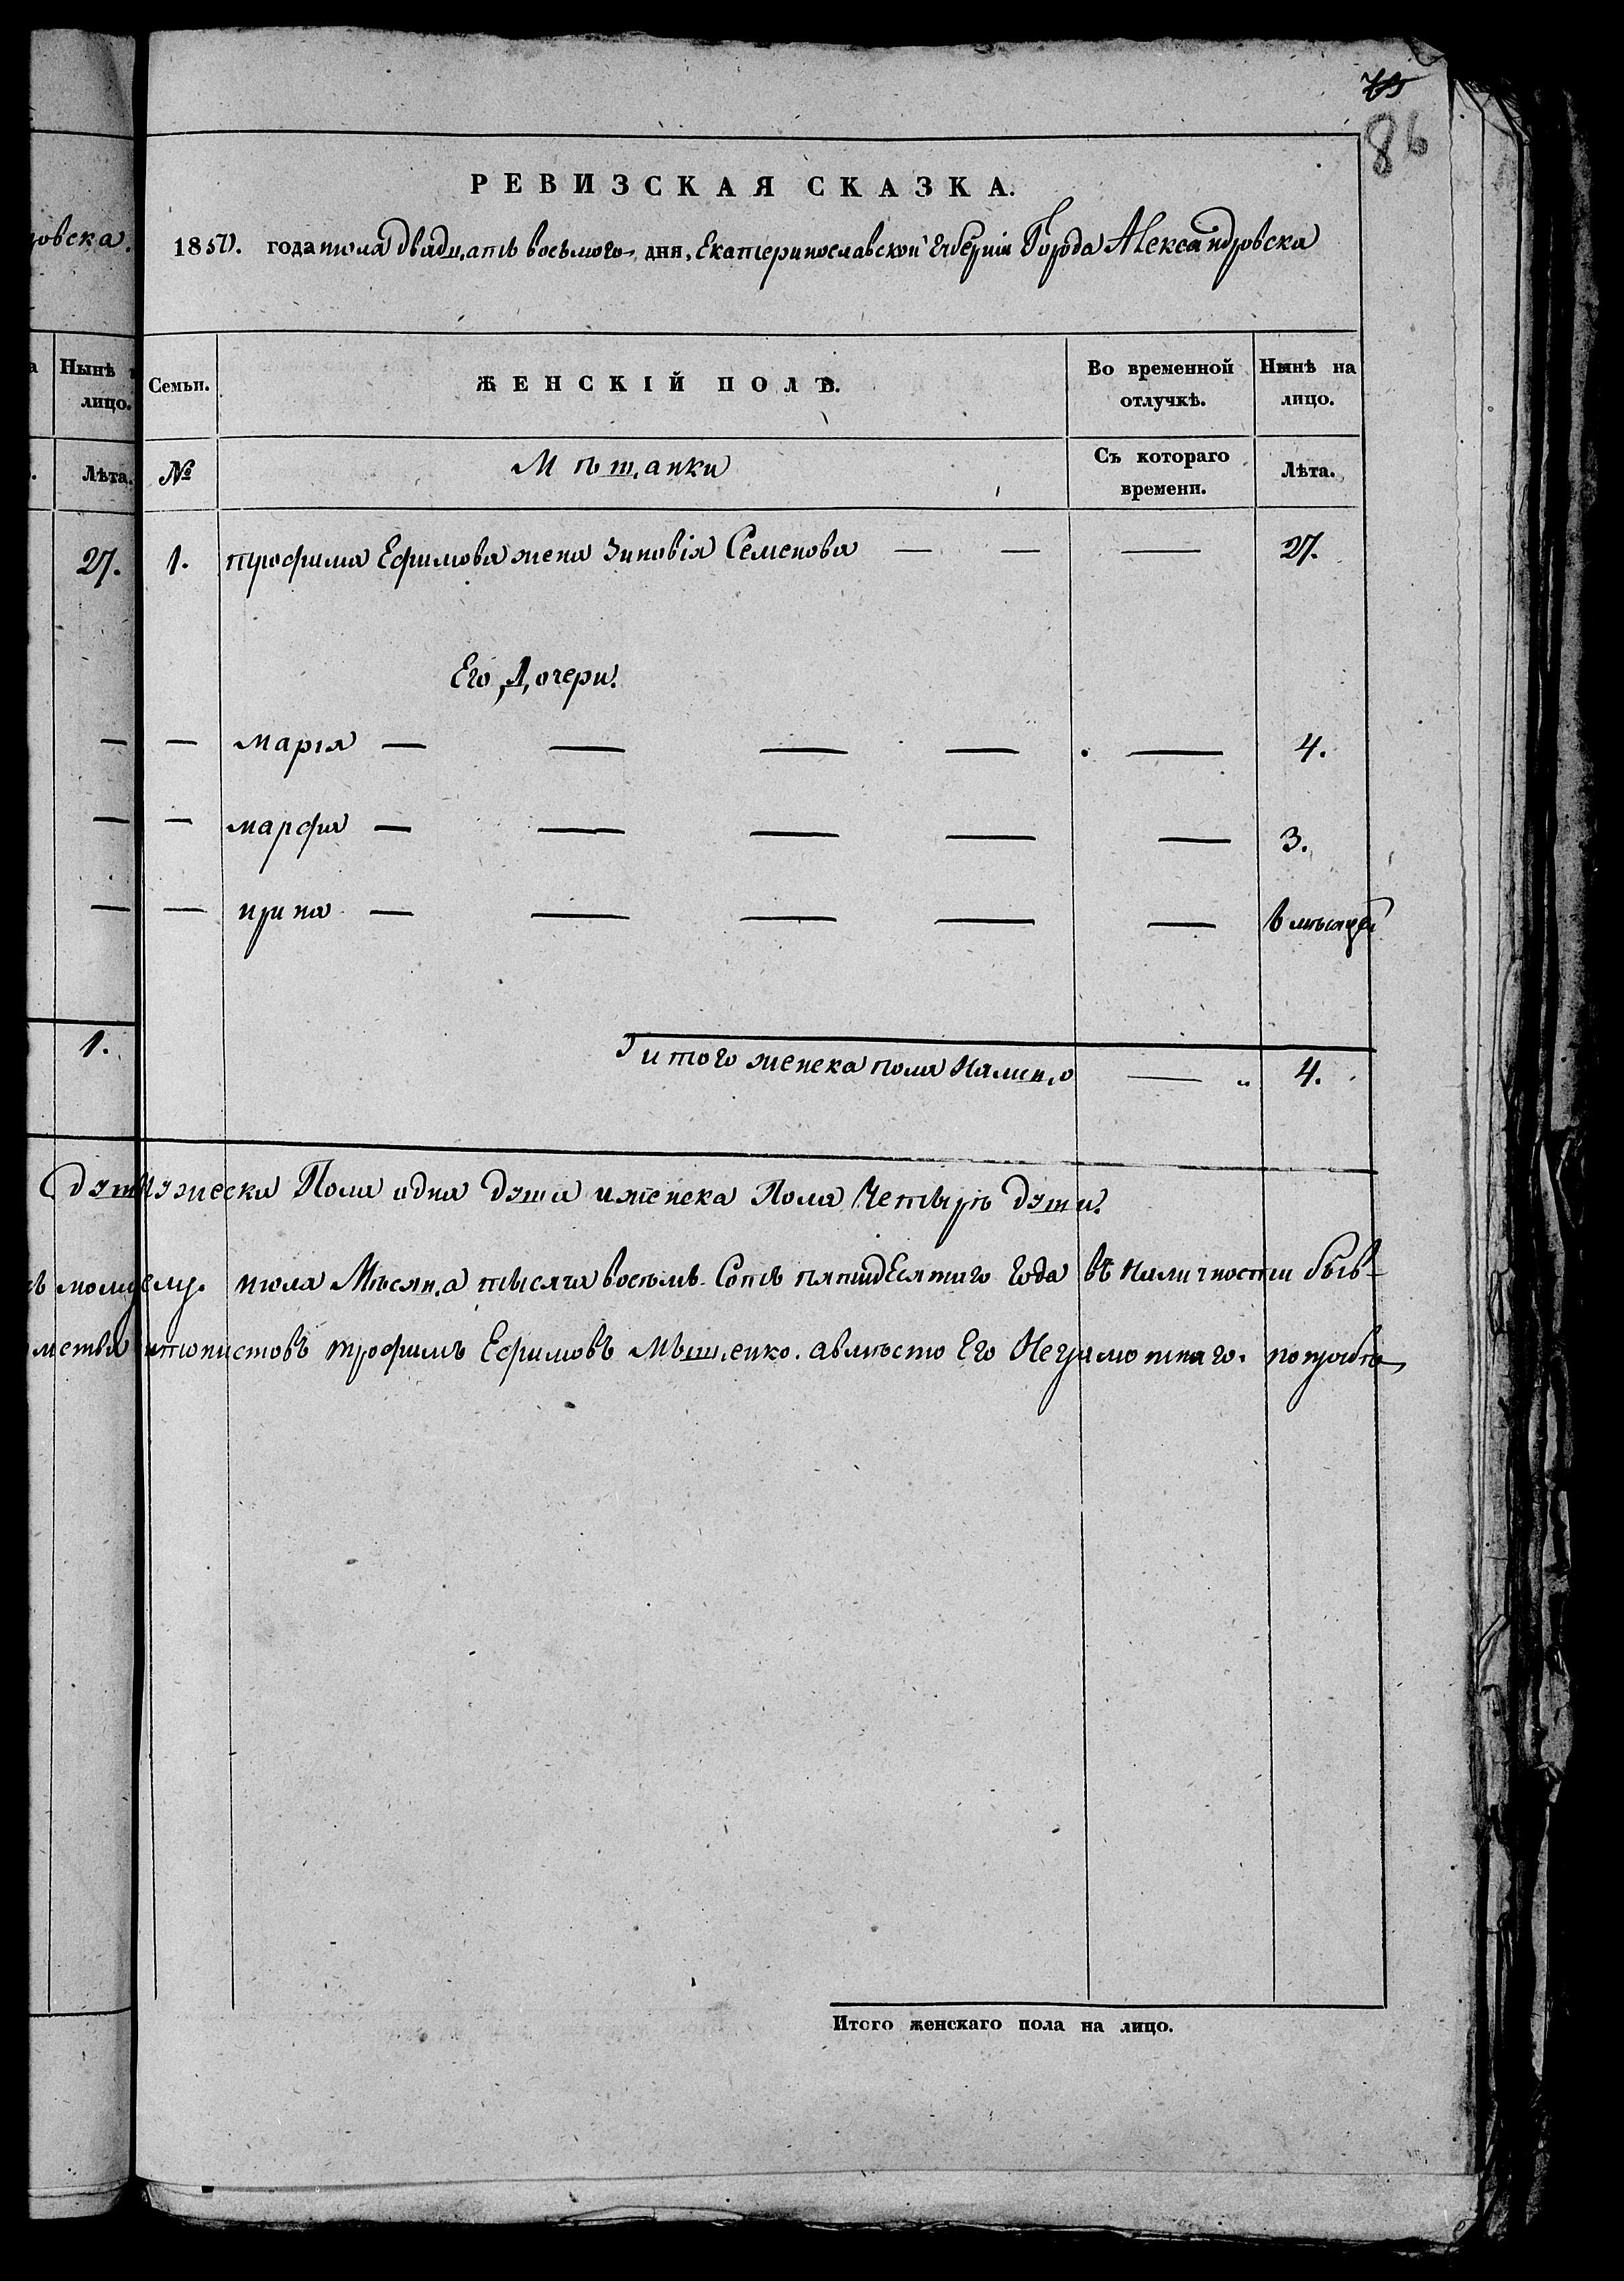 86
РЕВИЗСКАЯ СКАЗКА.
1850. года июля двадцать восьмого дня, Екатеринославской Губерніи Города Александровска
овска.
Нынѣ
лицо.
Лѣта.
Семьи.
ЖЕНСКІЙ ПОЛЪ.
Во временной отлучкѣ.
Нынѣ на лицо.
№
Мѣщанки
Съ котораго времени.
Лѣта.
27. 1. трофима Ефимова жена зиновія Семенова — — — 27.
Его Дочери.
— — марія — — — — — 4.
— — марфа — — — — — 3.
— — ирина — — — — — мѣсяцей
1. итого женска пола Налицо — 4.
мужеска Пола одна душа и женска Пола Четырѣ души.
июля Мѣсяца тысяча восѣмъ Сотъ пятидесятаго Года въ наличности быв-
трофимъ Ефимовъ Мѣщенко. а вмѣсто Его Неграмотнаго. по прозбѣ
Итого женскаго пола на лицо.